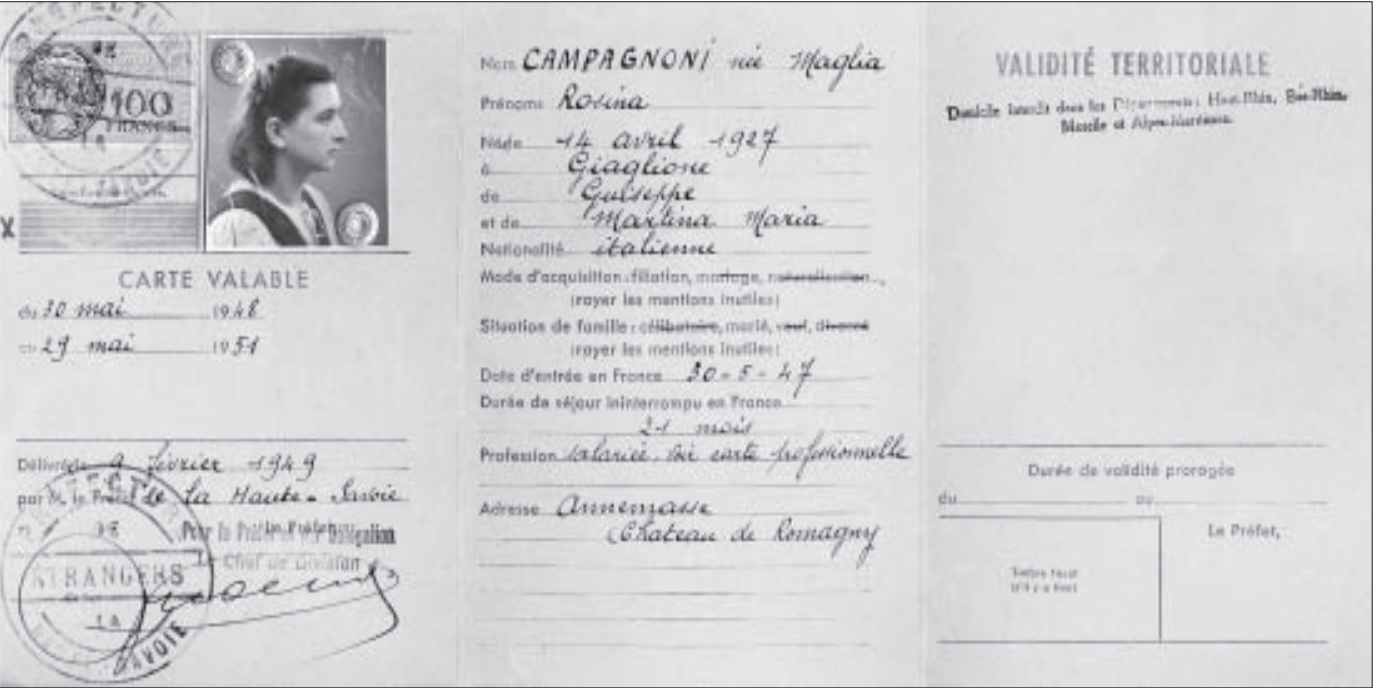 PRÉFECTURE
100
FRANCS
SAVOIE
X
CARTE VALABLE
du 30 mai 1948
au 29 mai 1951
Délivrée 9 février 1949
par M. le Préfet de La Haute-Savoie
Pour le Préfet et par Délégation
Le Chef de Division
PRÉFECTURE
ÉTRANGERS
SAVOIE
Nom CAMPAGNONI née Maglia
Prénoms Rosina
Née le 14 avril 1927
à Giaglione
de Guiseppe
et de Martina Maria
Nationalité italienne
Mode d'acquisition : filiation, mariage, naturalisation
(rayer les mentions inutiles)
Situation de famille : célibataire, marié, veuf, divorcé
(rayer les mentions inutiles)
Date d'entrée en France 30-5-47
Durée de séjour ininterrompu en France
21 mois
Profession salariée, voir carte professionnelle
Adresse Annemasse
Chateau de Romagny
VALIDITÉ TERRITORIALE
Domicile interdit dans les Départements: Haut-Rhin, Bas-Rhin,
Moselle et Alpes-Maritimes
Durée de validité prorogée
du au
Le Préfet,
Timbre fiscal
(s'il y a lieu)